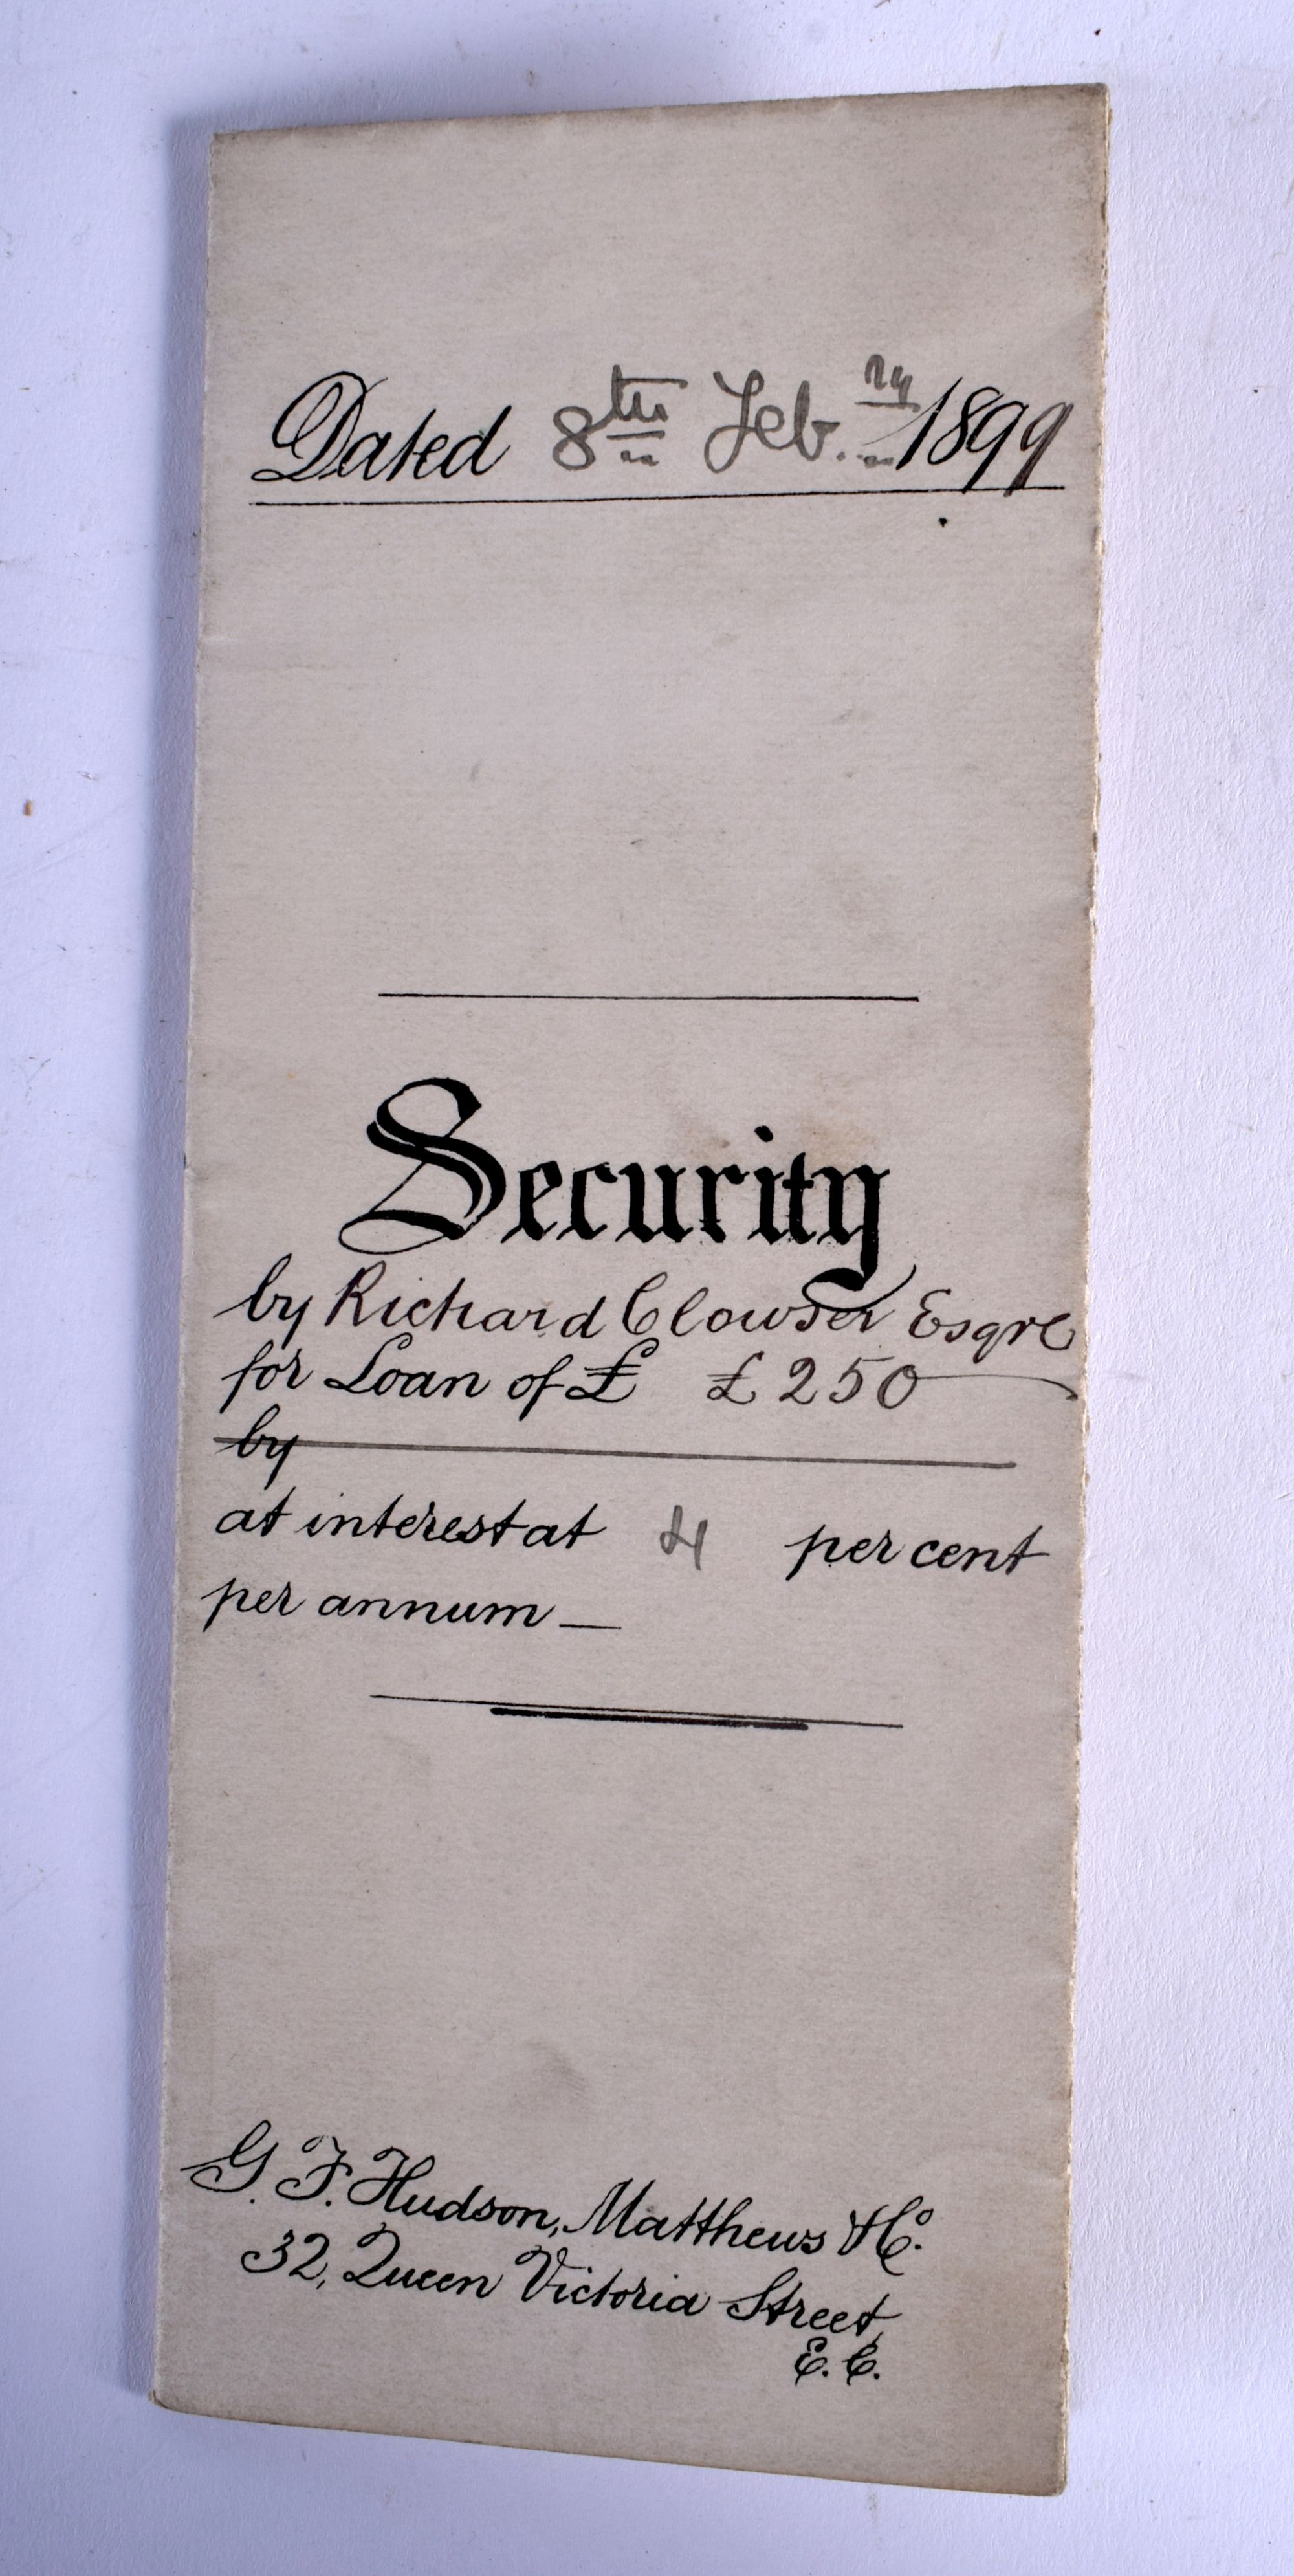 Dated 8th Feb.ry 1899
Security
by Richard Clowser Esqre
for Loan of £ £250
by
at interest at 4 per cent
per annum
G. F. Hudson, Matthews & Co.
32, Queen Victoria Street
E.C.